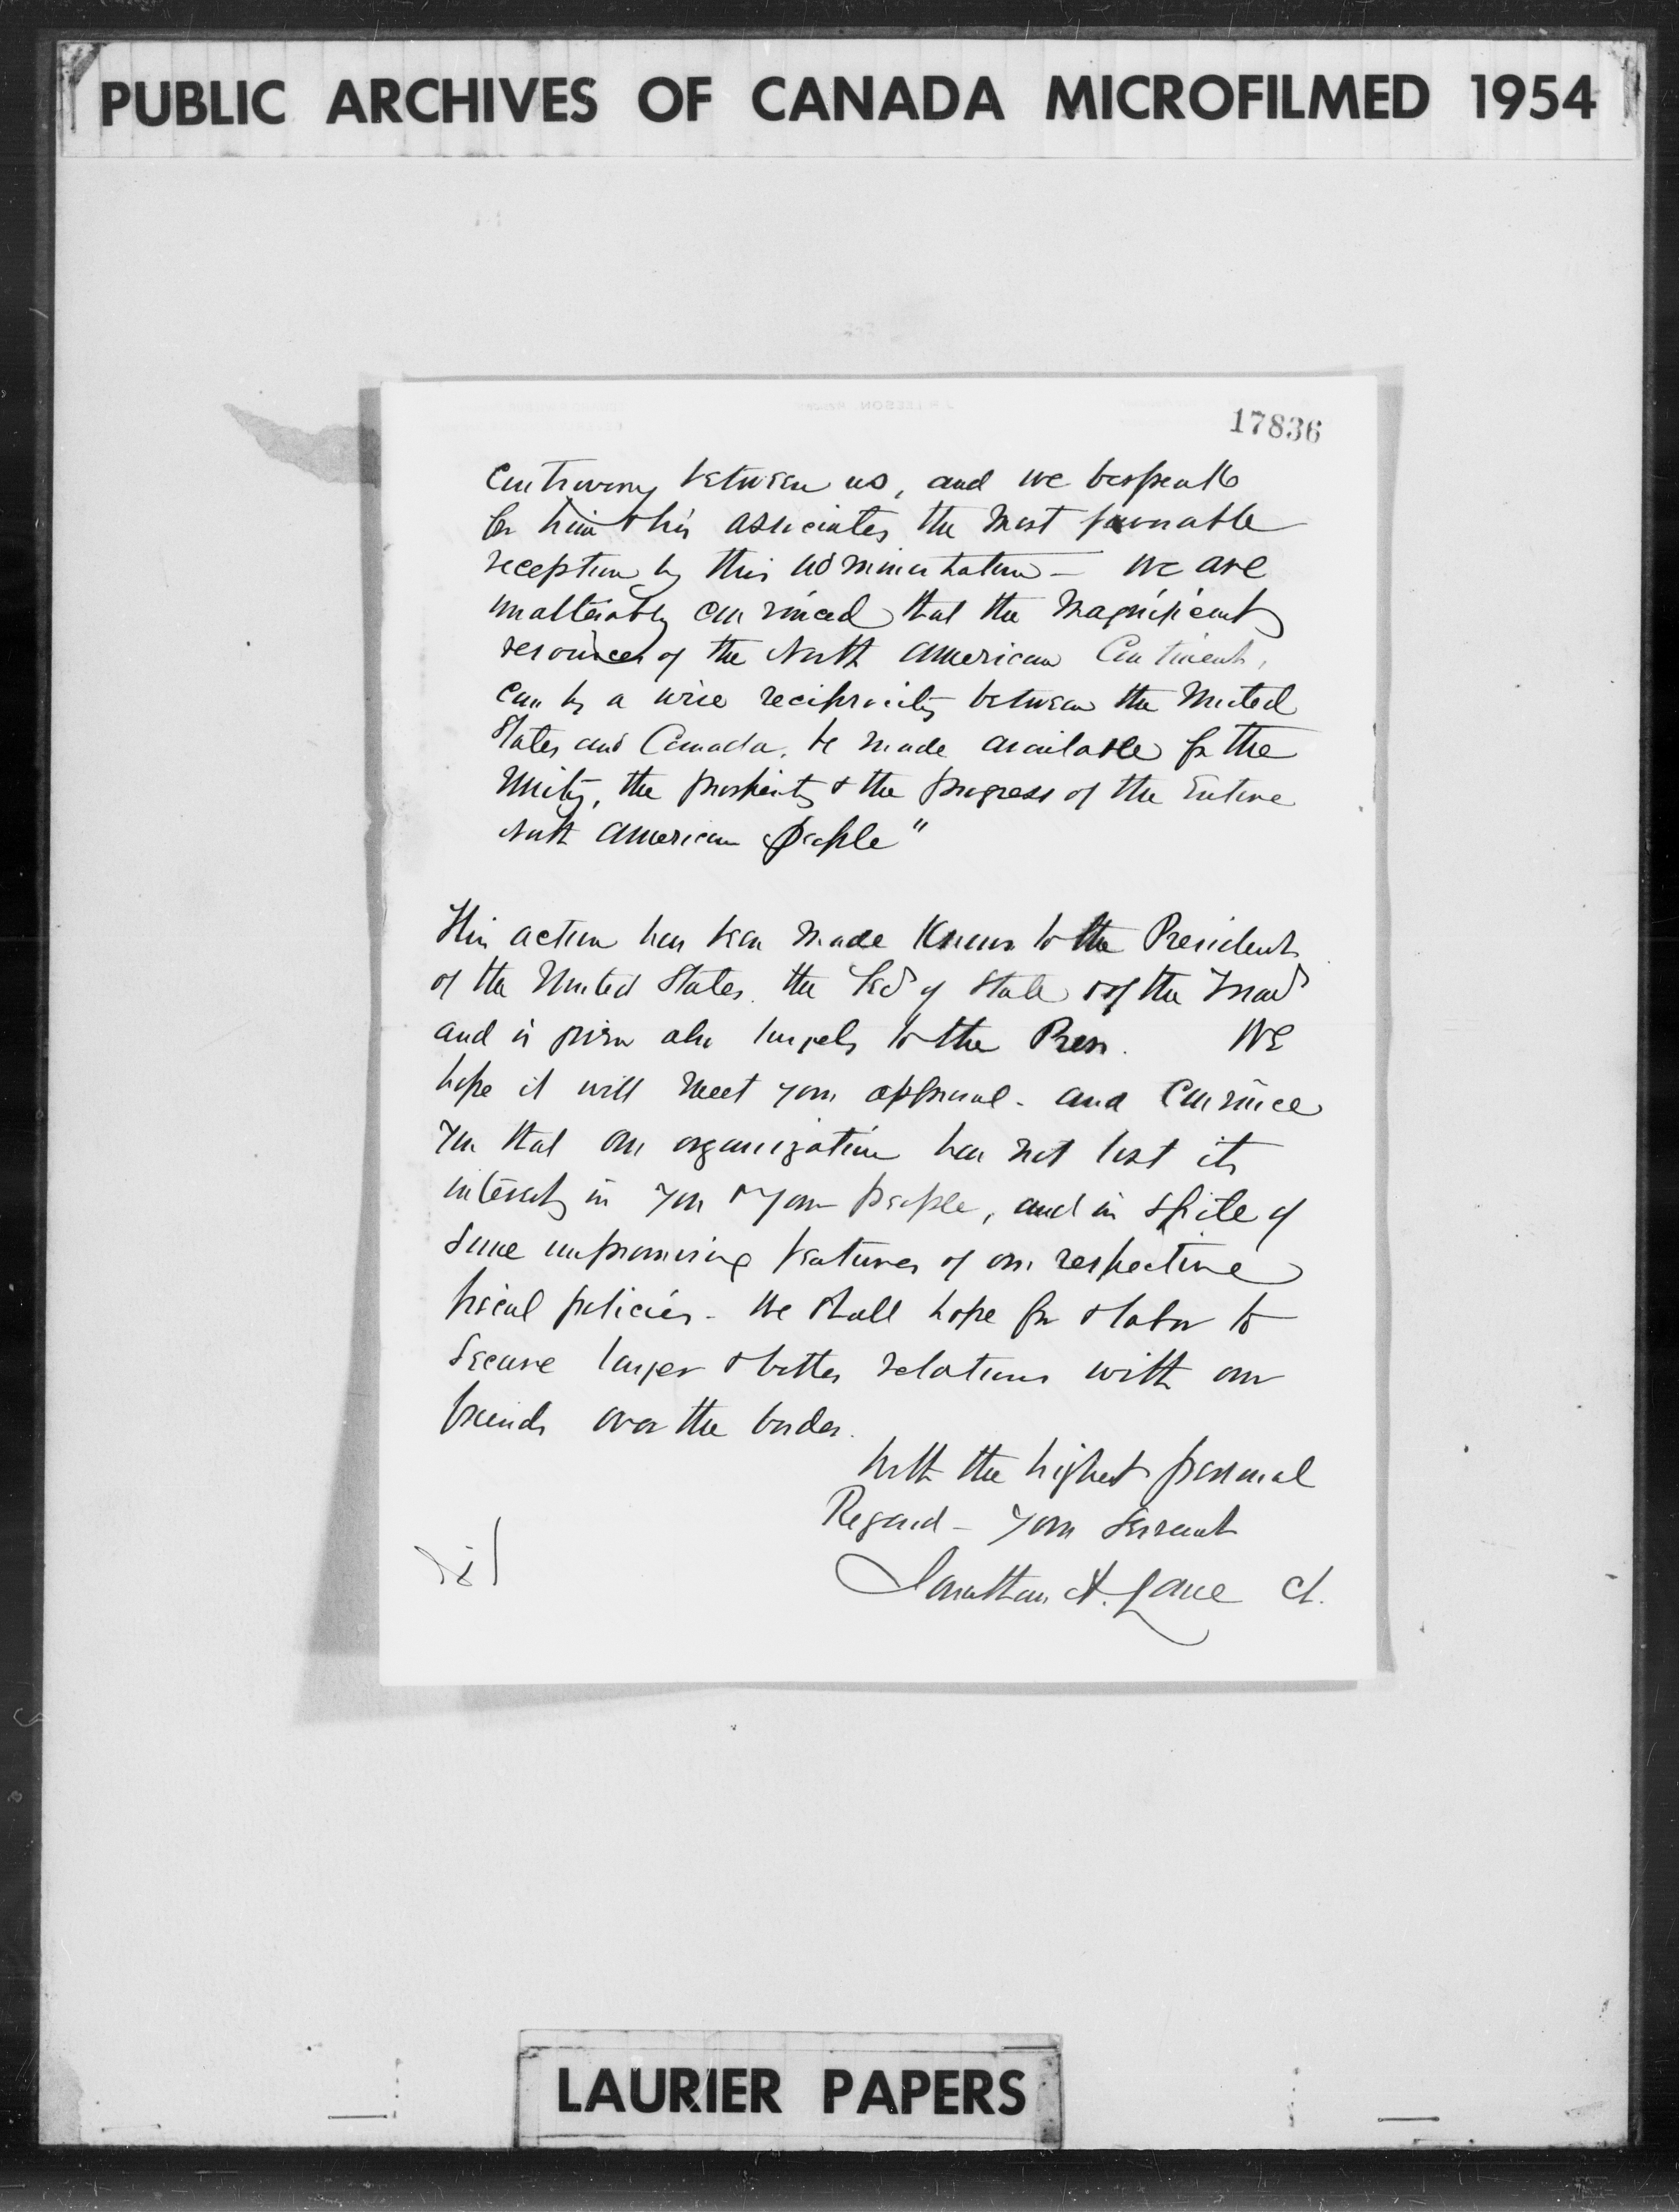 PUBLIC ARCHIVES OF CANADA MICROFILMED 1954
17836
Controversy between us, and we bespeak
for him & his associates the most favorable
reception by this administration — We are
unalterably convinced that the magnificent
resources of the North American Continent,
can by a wise reciprocity between the United
States and Canada, be made available for the
Unity, the prosperity & the progress of the Entire
North American people"
This action has been made known to the President
of the United States. the Secy of State & of the
and is given also largely to the Press. We
hope it will meet your approval - and Convince
you that our organization has not lost its
interest in you & your people, and in spite of
some unpromising features of our respective
fiscal policies - We shall hope for & labor to
secure larger & better relations with our
friends over the border.
With the highest personal
Regard - Your Servant
Jonathan A. Lane
LAURIER PAPERS